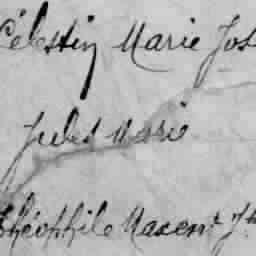 Célestin Marie Jos
Jules Marie
Théophile Maxent Jh